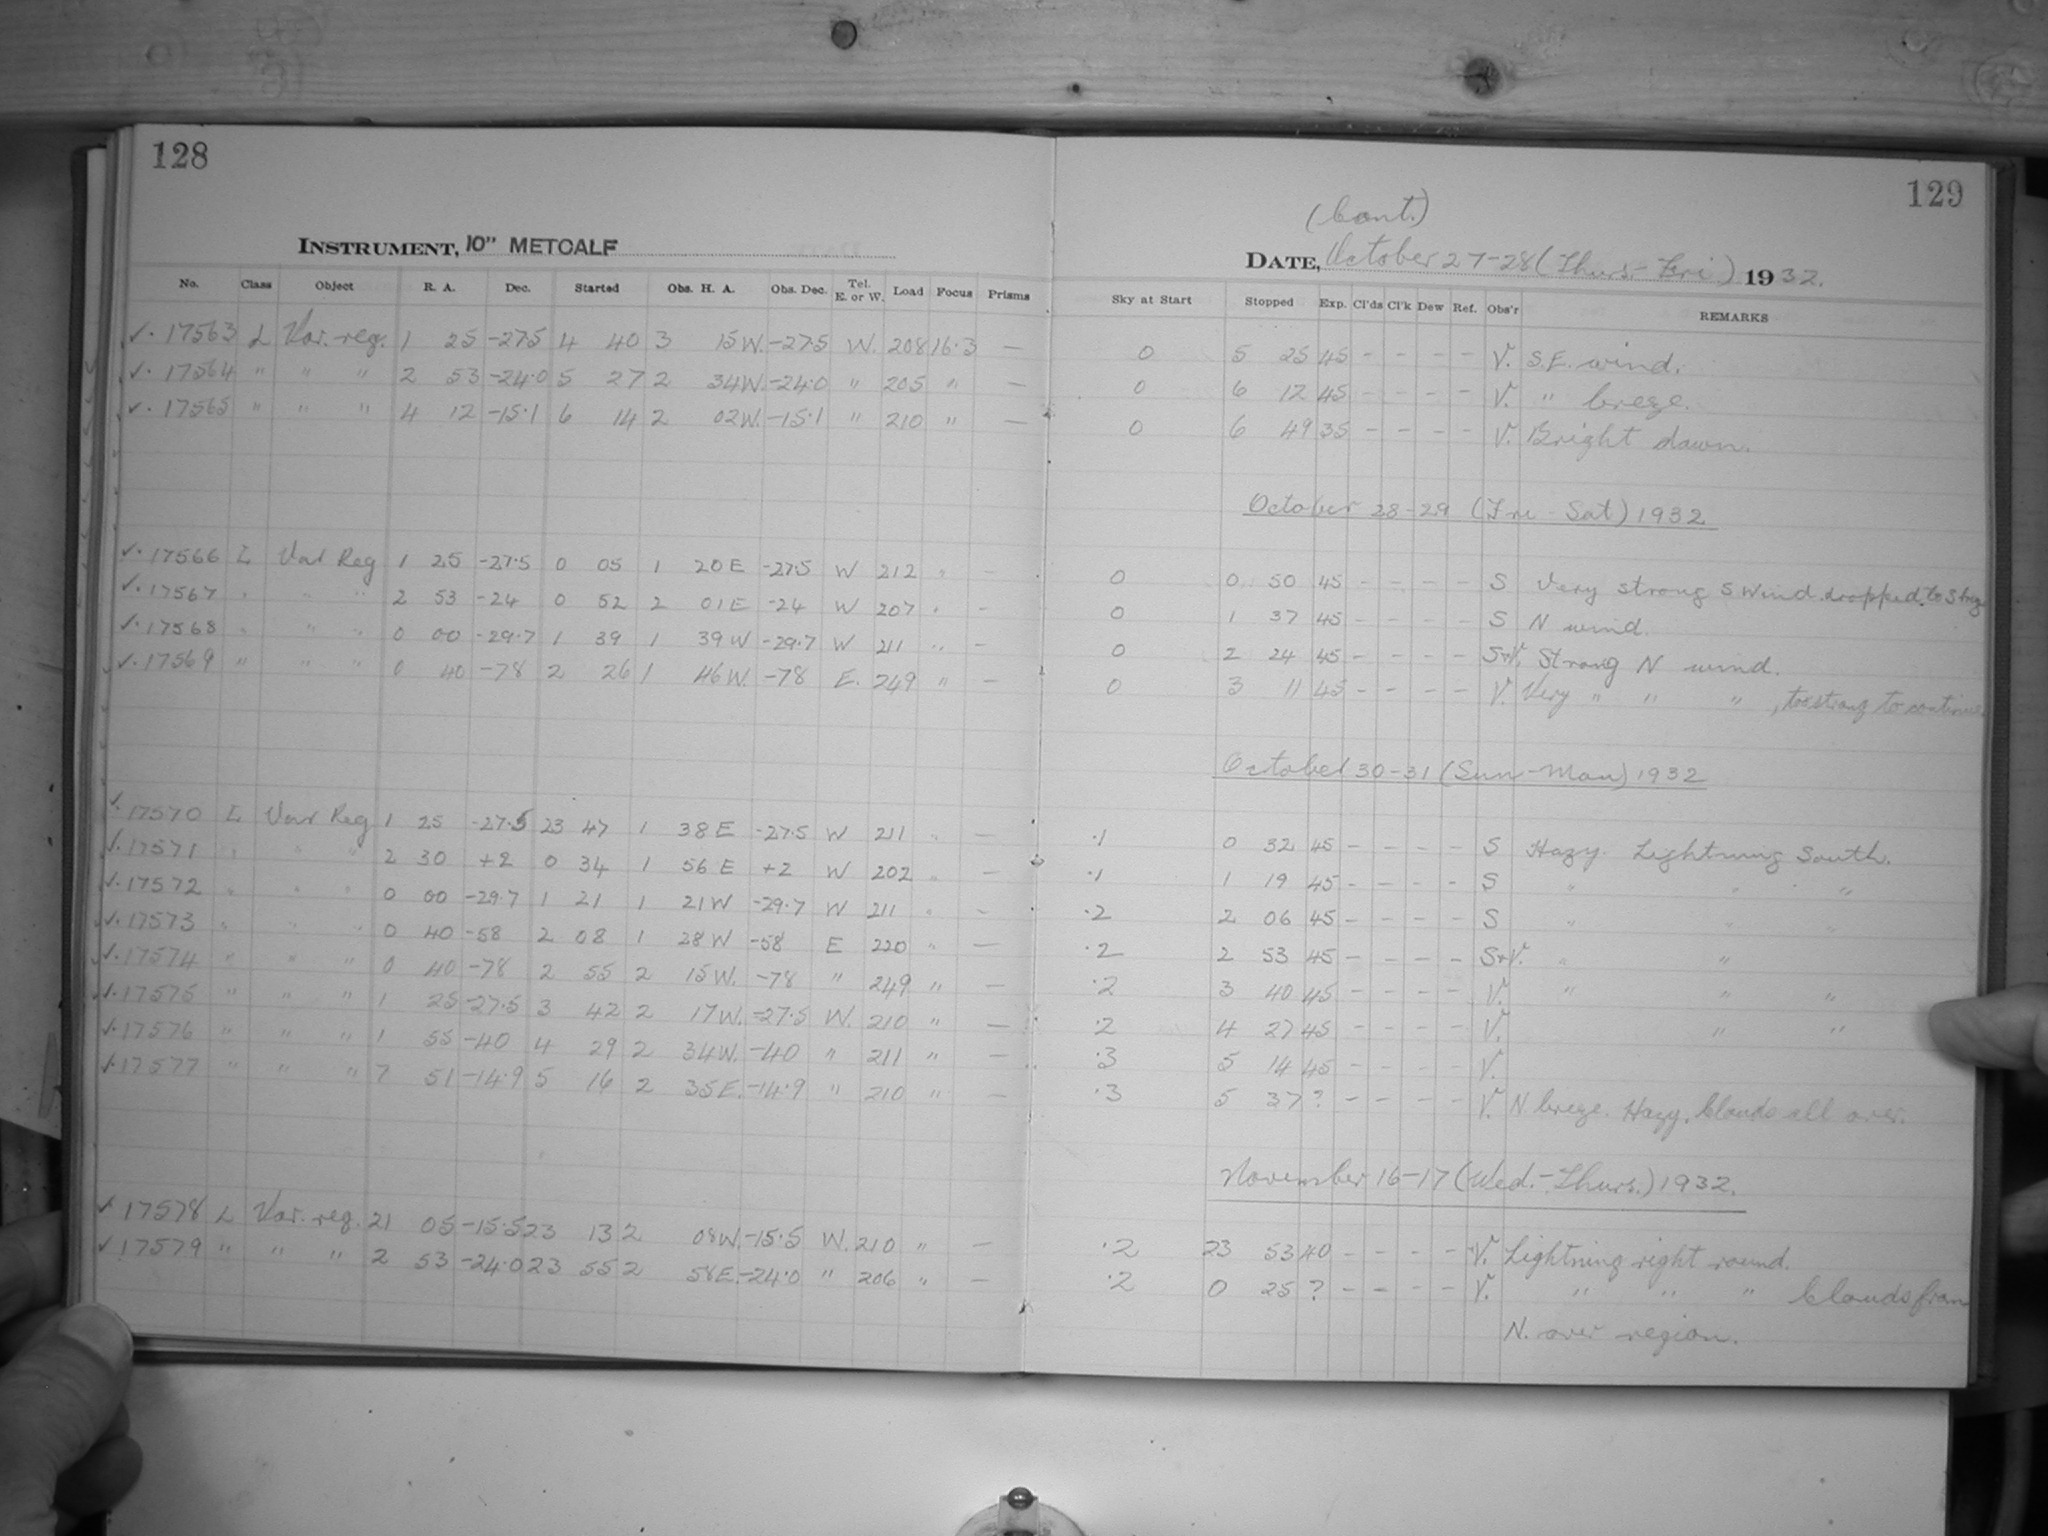 128
INSTRUMENT, 10" METCALF
No. Class Object R. A. Dec. Started Obs. H. A. Obs. Dec. Tel. E. or W. Load Focus Prisms
✓. 17563 L Var. reg. 1 25 -27.5 4 40 3 15W. -27.5 W. 208 16.3 —
✓. 17564 " " " 2 53 -24.0 5 27 2 34W. -24.0 " 205 " —
✓. 17565 " " " 4 12 -15.1 6 14 2 02W. -15.1 " 210 " —
✓. 17566 L Var Reg 1 25 -27.5 0 05 1 20E -27.5 W 212 " —
✓. 17567 " " " 2 53 -24 0 52 2 01E -24 W 207 " —
✓. 17568 " " " 0 00 -29.7 1 39 1 39W -29.7 W 211 " —
✓. 17569 " " " 0 40 -78 2 26 1 46W. -78 E. 249 " —
✓. 17570 L Var Reg 1 25 -27.5 23 47 1 38E -27.5 W 211 " —
✓. 17571 " " " 2 30 +2 0 34 1 56E +2 W 202 " —
✓. 17572 " " " 0 00 -29.7 1 21 1 21W -29.7 W 211 " —
✓. 17573 " " " 0 40 -58 2 08 1 28W -58 E 220 " —
✓. 17574 " " " 0 40 -78 2 55 2 15W. -78 " 249 " —
✓. 17575 " " " 1 25 -27.5 3 42 2 17W. -27.5 W. 210 " —
✓. 17576 " " " 1 55 -40 4 29 2 34W. -40 " 211 " —
✓. 17577 " " " 7 51 -14.9 5 16 2 35E. -14.9 " 210 " —
✓ 17578 L Var. reg. 21 05 -15.5 23 13 2 08W. -15.5 W. 210 " —
✓ 17579 " " " 2 53 -24.0 23 55 2 58E. -24.0 " 206 " —
129
(Cont.)
DATE, October 27-28 (Thurs.-Fri) 1932.
Sky at Start Stopped Exp. Cl'ds Cl'k Dew Ref. Obs'r REMARKS
0 5 25 45 - - - - V. S.E. wind.
0 6 12 45 - - - - V. " breeze.
0 6 49 35 - - - - V. Bright dawn.
October 28-29 (Fri - Sat) 1932
0 0 50 45 - - - - S Very strong S wind dropped to
0 1 37 45 - - - - S N wind.
0 2 24 45 - - - - S+V. Strong N wind.
0 3 11 45 - - - - V. Very " " " , too strong to continue.
October 30-31 (Sun-Mon) 1932
.1 0 32 45 - - - - S Hazy. Lightning South.
.1 1 19 45 - - - - S " " "
.2 2 06 45 - - - - S " " "
.2 2 53 45 - - - - S+V. " "
.2 3 40 45 - - - - V. " " "
.2 4 27 45 - - - - V. " "
.3 5 14 45 - - - - V.
.3 5 37 ? - - - - V. N. breeze. Hazy. Clouds all over.
November 16-17 (Wed.-Thurs.) 1932.
.2 23 53 40 - - - - V. Lightning right round.
.2 0 25 ? - - - - V. " " " Clouds from
N. over region.